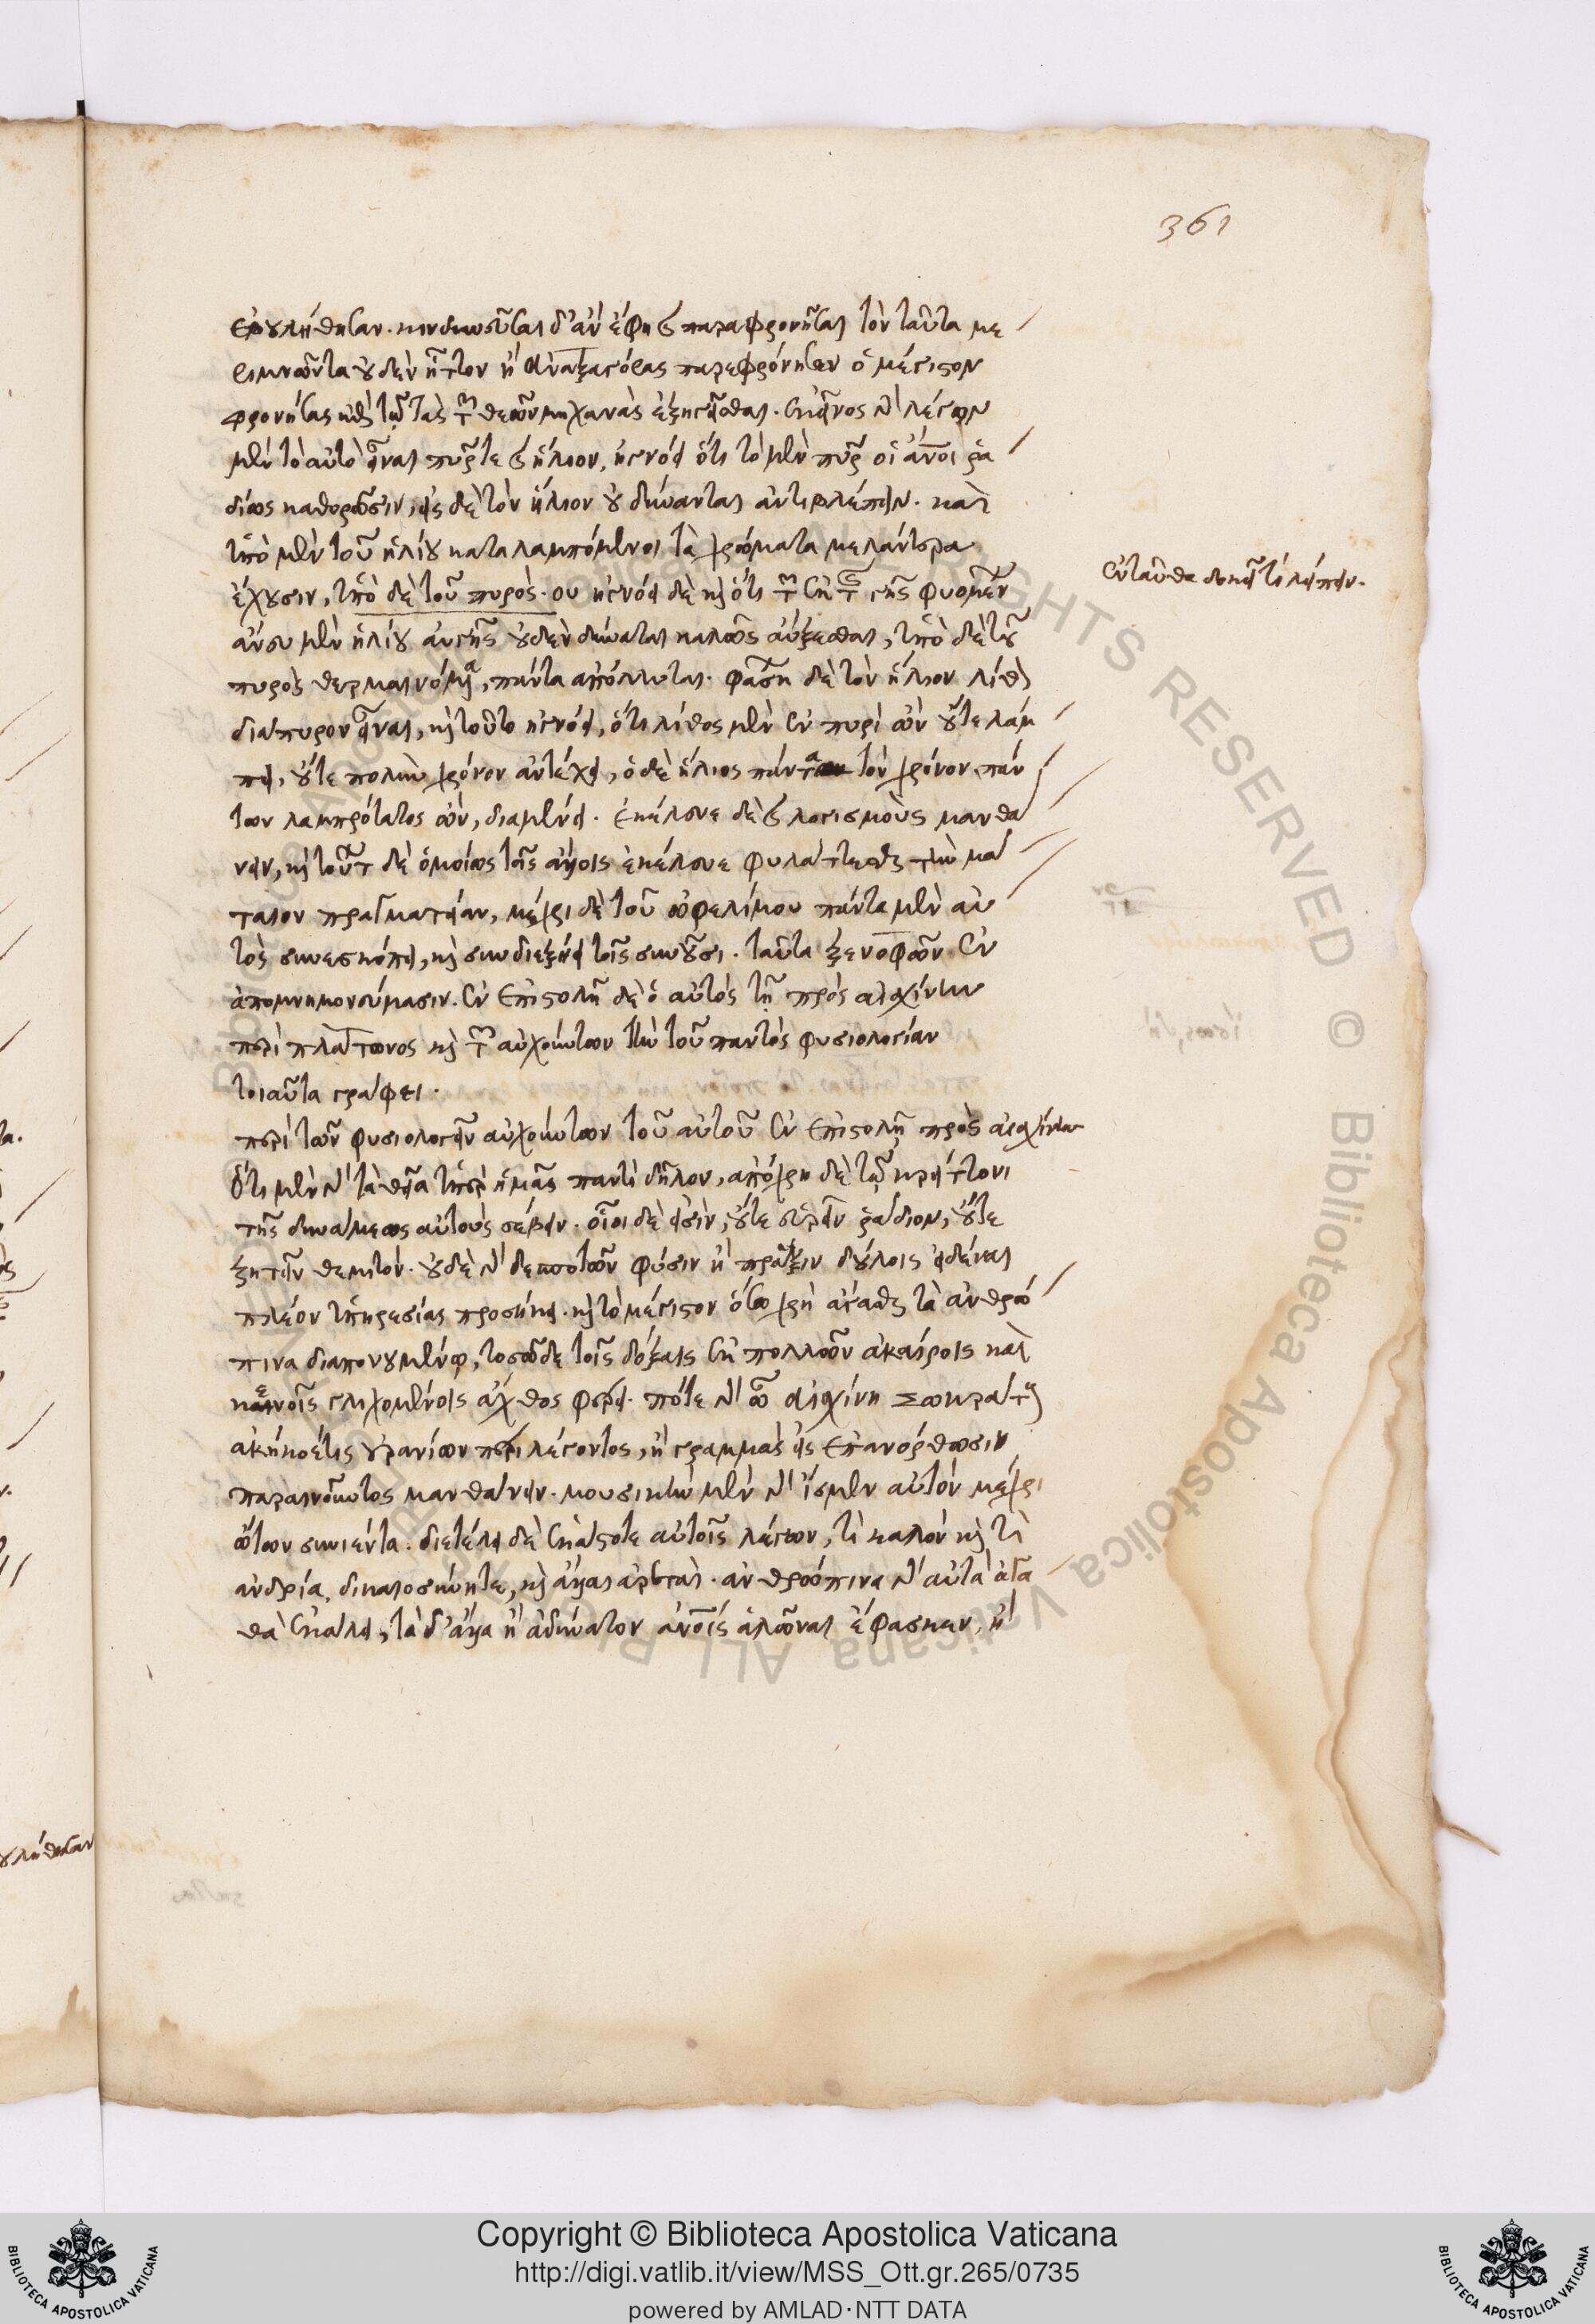 361
ἐβουλήθησαν. κινδυνεῦσαι δ' ἂν ἔφη καὶ παραφρονῆσαι τὸν ταῦτα με
ριμνῶντα οὐδὲν ἧττον ἢ ἀναξαγόρας παρεφρόνησεν ὁ μέγιστον
φρονήσας ἐπὶ τῷ τὰς τῶν θεῶν μηχανὰς ἐξηγεῖσθαι. ἐκεῖνος γὰρ λέγων
μὲν τὸ αὐτὸ εἶναι πῦρ τε καὶ ἥλιον, ἠγνόει ὅτι τὸ μὲν πῦρ οἱ ἄνοι ῥα
δίως καθορῶσιν, εἰς δὲ τὸν ἥλιον οὐ δύνανται ἀντιβλέπειν. καὶ
ὑπὸ μὲν τοῦ ἡλίου καταλαμπόμενοι τὰ χρώματα μελάντερα
ἔχουσιν, ὑπὸ δὲ τοῦ πυρὸς. ου ἠγνόει δὲ καὶ ὅτι τῶν ἐκ τῆς γῆς φυομένων
ἄνευ μὲν ἡλίου αὐγῆς οὐδὲν δύναται καλῶς αὔξεσθαι, ὑπὸ δὲ τοῦ
πυρὸς θερμαινόμενα, πάντα ἀπόλλυται. φάσκων δὲ τὸν ἥλιον λίθον
διάπυρον εἶναι, καὶ τοῦτο ἠγνόει, ὅτι λίθος μὲν ἐν πυρὶ ὢν οὔτε λάμ
πει, οὔτε πολὺν χρόνον ἀντέχει, ὁ δὲ ἥλιος πάντα τὸν χρόνον πάν
των λαμπρότατος ὢν, διαμένει. ἐκέλευε δὲ καὶ λογισμοὺς μανθά
νειν, καὶ τούτων δὲ ὁμοίως τοῖς ἄλλοις ἐκέλευε φυλάττεσθαι τὴν μά
ταιον πραγματείαν, μέχρι δὲ τοῦ ὠφελίμου πάντα μὲν αὐ
τὸς συνεσκόπει, καὶ συνδιεξῄει τοῖς συνοῦσι. ταῦτα ξενοφῶν ἐν
ἀπομνημονεύμασιν. ἐν ἐπιστολῇ δὲ ὁ αὐτὸς τῇ πρὸς αἰσχίνην
περὶ πλάτωνος καὶ τῶν αὐχούντων τὴν τοῦ παντὸς φυσιολογίαν
τοιαῦτα γράφει.
περὶ τῶν φυσιολογεῖν αὐχούντων τοῦ αὐτοῦ ἐν ἐπιστολῇ πρὸς αἰσχίνην
ὅτι μὲν γὰρ τὰ θεῖα ὑπὲρ ἡμᾶς παντὶ δῆλον, ἀπόχρη δὲ τῷ κρείττονι
τῆς δυνάμεως αὐτοὺς σέβειν. οἷοι δὲ εἰσὶν, οὔτε εὑρεῖν ῥάδιον, οὔτε
ζητεῖν θεμιτόν. οὐδὲ γὰρ δεσποτῶν φύσιν ἢ πρᾶξιν δούλοις εἰδέναι
πλέον ὑπηρεσίας προσήκει. καὶ τὸ μέγιστον ὅσῳ χρὴ ἄγασθαι τὰ ἀνθρώ
πινα διαπονουμένῳ, τοσῷδε τοῖς δόξαις ἐκ πολλῶν ἀκαίροις καὶ
κεναῖς γλιχομένοις ἄχθος φέρει. πότε γὰρ ὦ αἰσχίνη Σωκράτους
ἀκήκοέ τις οὐρανίων περὶ λέγοντος, ἢ γραμμὰς εἰς ἐπανόρθωσιν
παραινοῦντος μανθάνειν. μουσικὴν μὲν γὰρ ἴσμεν αὐτὸν μέχρι
ὤτων συνιέντα. διετέλει δὲ ἑκάστοτε αὐτοῖς λέγων, τὶ καλὸν καὶ τὶ
ἀνδρία, δικαιοσύνη τε, καὶ ἄλλαι ἀρεταί. ἀνθρώπινα γὰρ αὐτὰ ἀγα
θὰ ἐκάλει, τὰ δ' ἄλλα ἢ ἀδύνατον ἀνοῖς ἁλῶναι ἔφασκεν, ἢ
ἐνταῦθα δοκεῖ τὶ λείπειν.
Copyright © Biblioteca Apostolica Vaticana
http://digi.vatlib.it/view/MSS_Ott.gr.265/0735
powered by AMLAD·NTT DATA
BIBLIOTECA APOSTOLICA VATICANA
BIBLIOTECA APOSTOLICA VATICANA